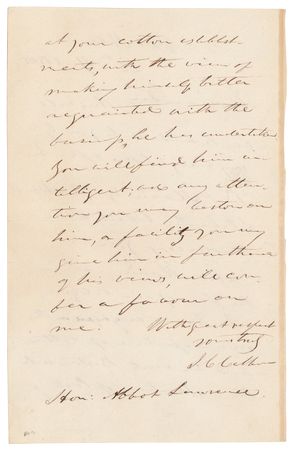 at your cotton establish-
ments, with the view of
making himself better
acquainted with the
business, he has undertaken
You will find him in-
telligent; and any atten-
tion you may bestow on
him, or facility you may
give him in furtherance
of his views, will con-
fer a favour on
me.
With great respect
yours truly
J. C. Calhoun
Hon: Abbot Lawrence